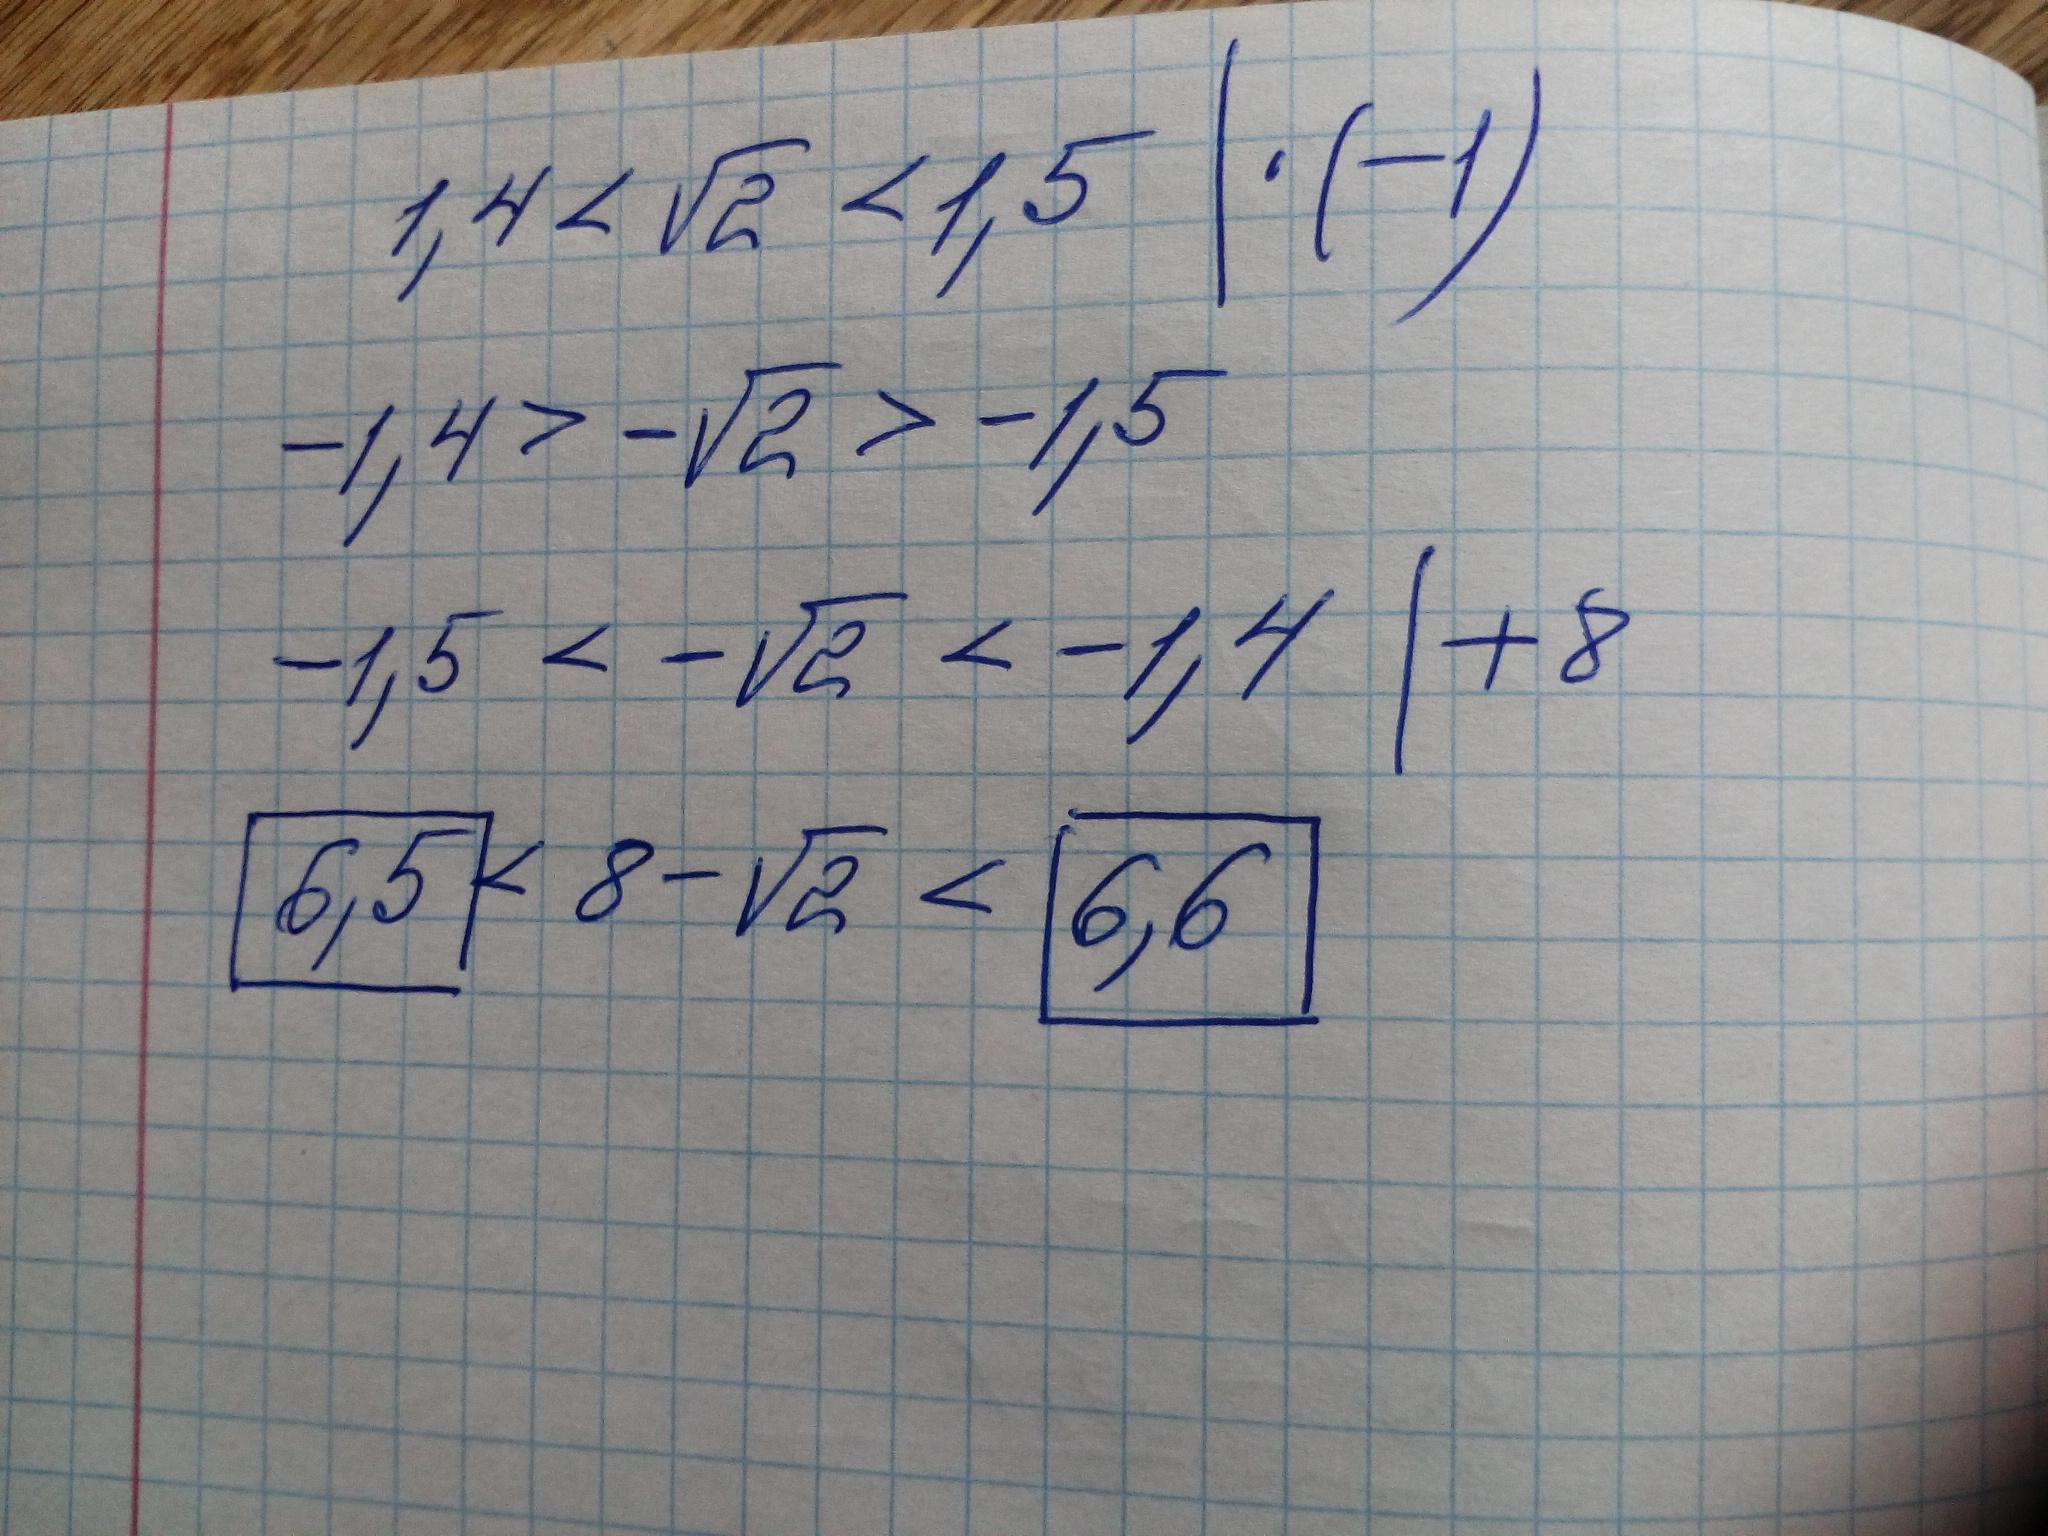 1,4 < √2 < 1,5 | · (−1)
−1,4 > −√2 > −1,5
−1,5 < −√2 < −1,4 | + 8
6,5 < 8 − √2 < 6,6